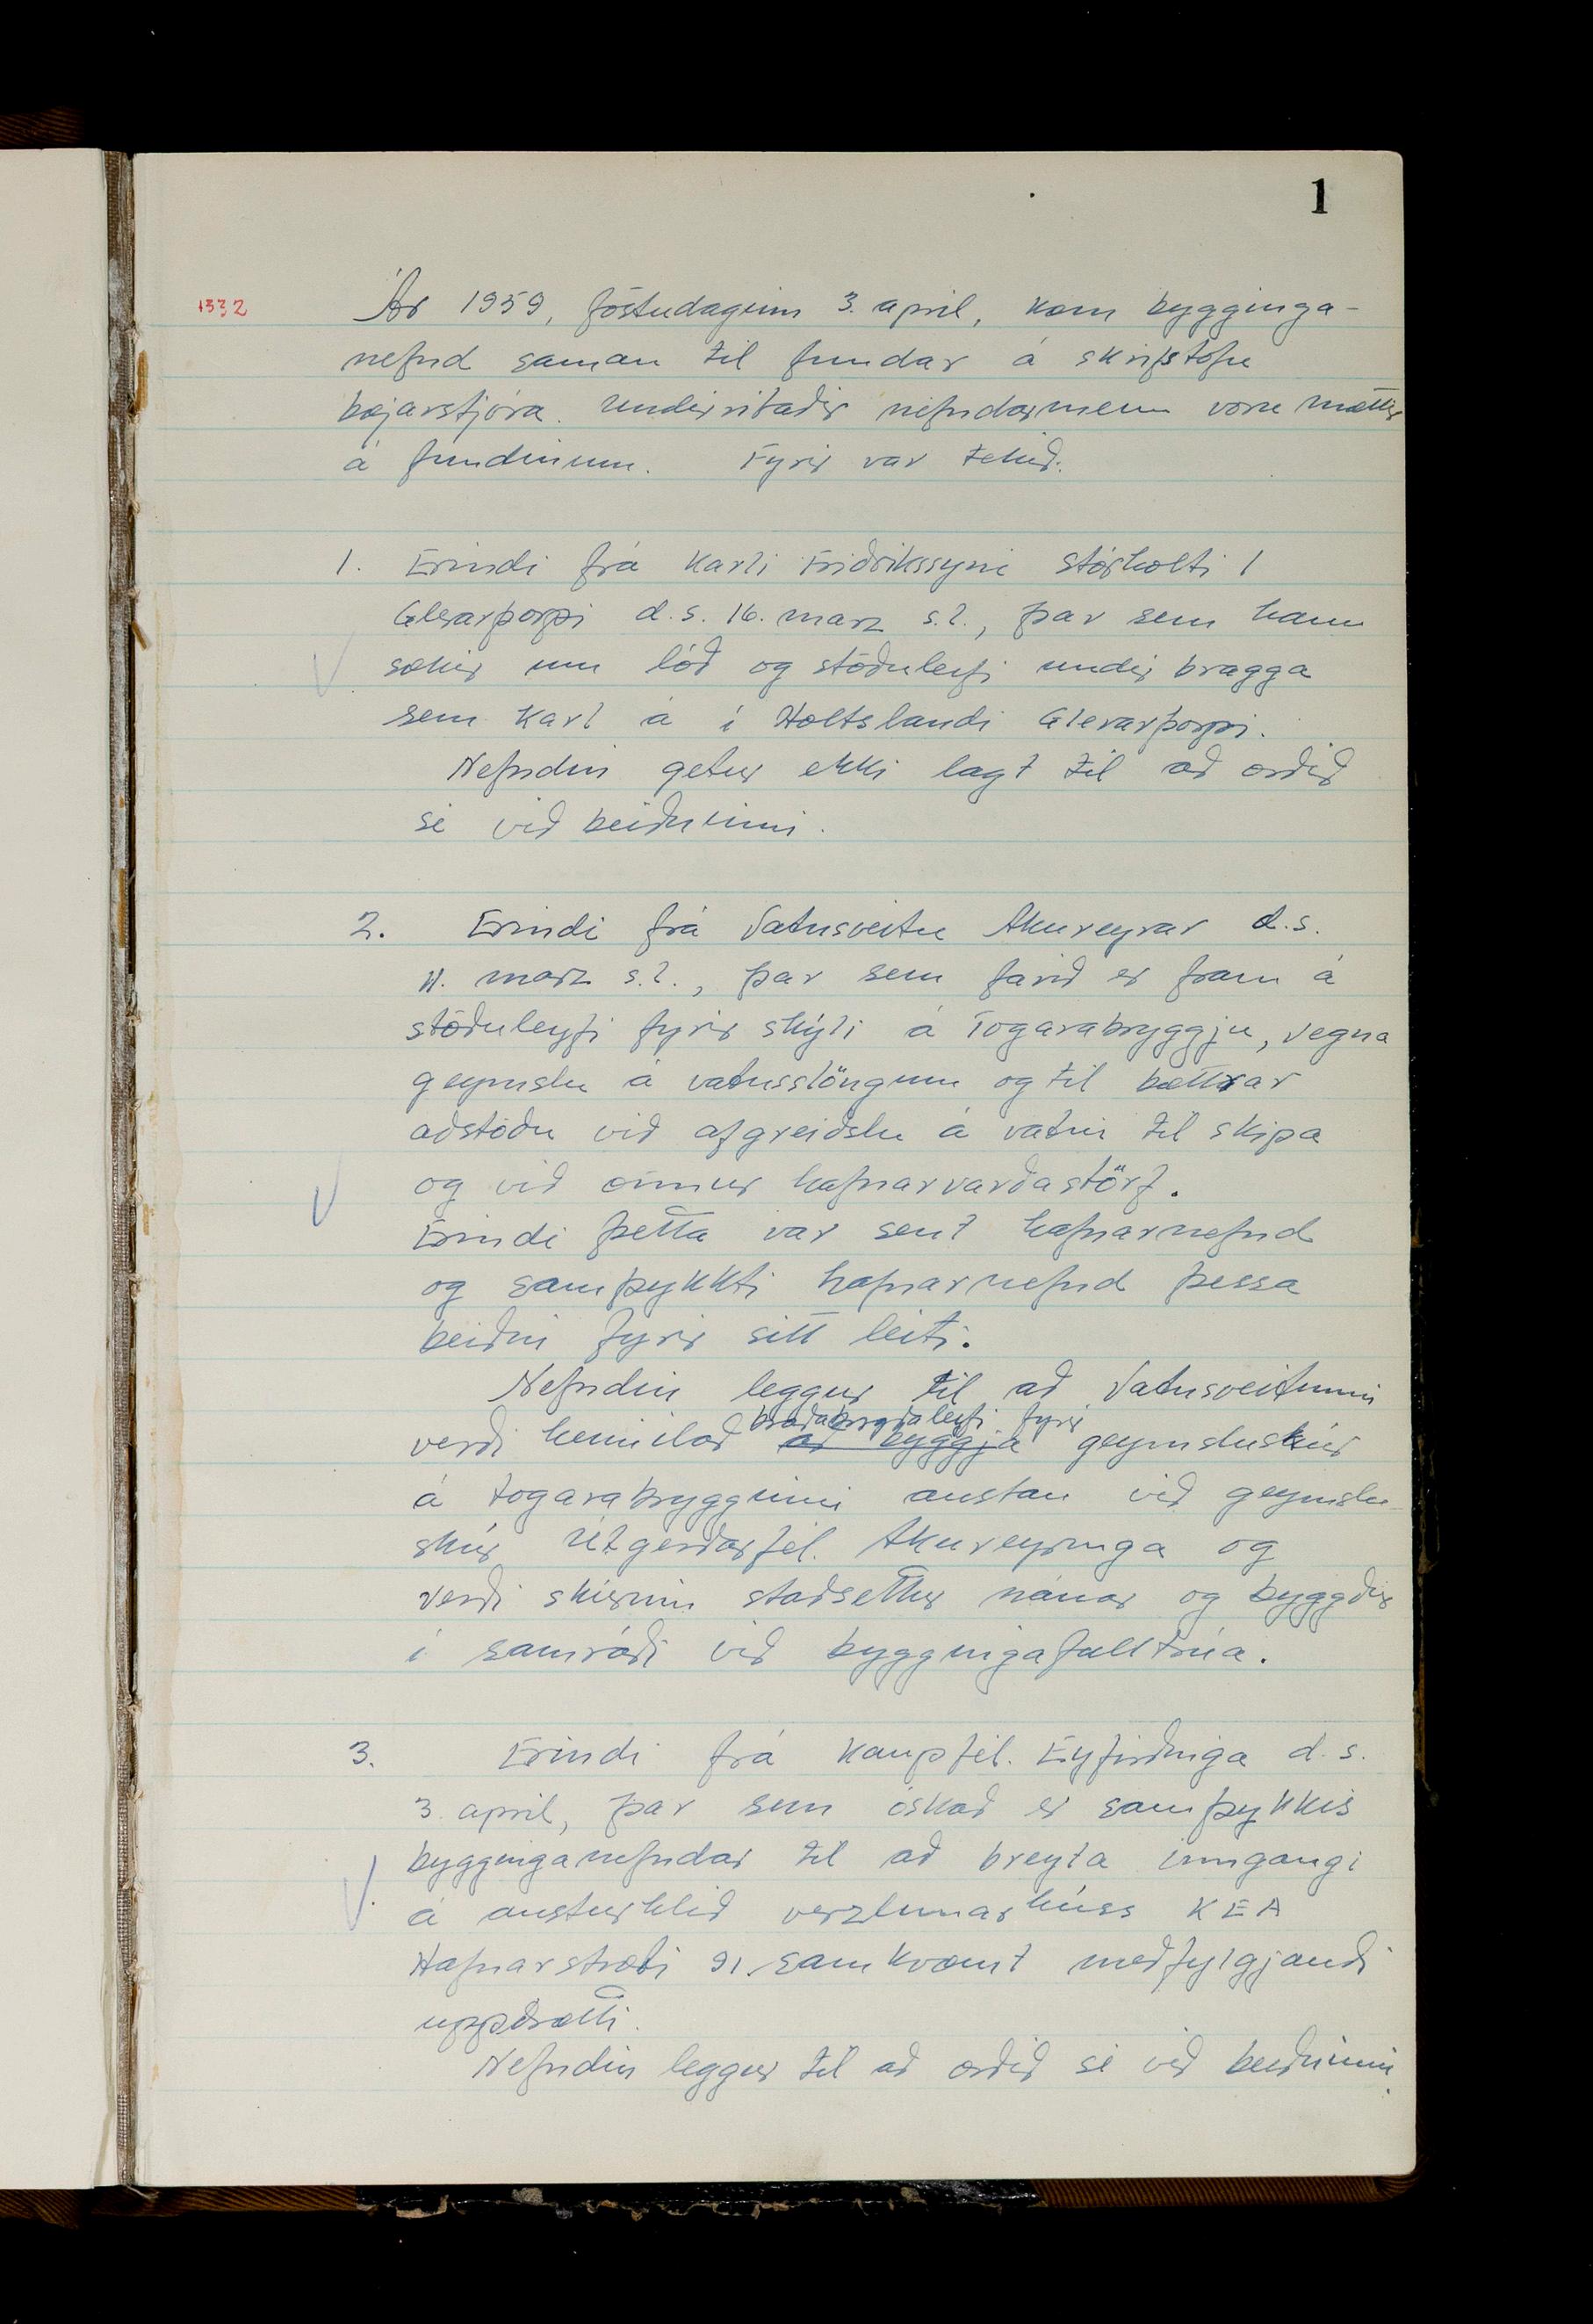 1
1332
Ár 1959, föstudaginn 3. apríl, kom bygginga-
nefnd saman til fundar á skrifstofu
bæjarstjóra. Undirritaðir nefndarmenn voru mættir
á fundinum. Fyrir var tekið:
1. Erindi frá Karli Friðrikssyni Stórholti 1
Glerárþorpi d.s. 16. marz s.l., þar sem hann
sækir um lóð og stöðuleyfi undir bragga
sem Karl á í Holtslandi Glerárþorpi.
Nefndin getur ekki lagt til að orðið
sé við beiðninni.
2. Erindi frá Vatnsveitu Akureyrar d.s.
11. marz s.l., þar sem farið er fram á
stöðuleyfi fyrir skýli á Togarabryggju, vegna
geymslu á vatnsslöngum og til bættrar
aðstöðu við afgreiðslu á vatni til skipa
og við önnur hafnarvarðastörf.
Erindi þetta var sent hafnarnefnd
og samþykkti hafnarnefnd þessa
beiðni fyrir sitt leiti.
Nefndin leggur til að Vatnsveitunni
bráðabirgðaleyfi fyrir
verði heimilað að byggja geymsluskúr
á togarabryggjunni austan við geymslu-
skúr Útgerðarfél. Akureyringa og
verði skúrinn staðsettur nánar og byggður
í samráði við byggingafulltrúa.
3. Erindi frá Kaupfél. Eyfirðinga d.s.
3. apríl, þar sem óskað er samþykkis
bygginganefndar til að breyta inngangi
á austurhlið verzlunarhúss KEA
Hafnarstræti 91 samkvæmt meðfylgjandi
uppdrætti.
Nefndin leggur til að orðið sé við beiðninni.